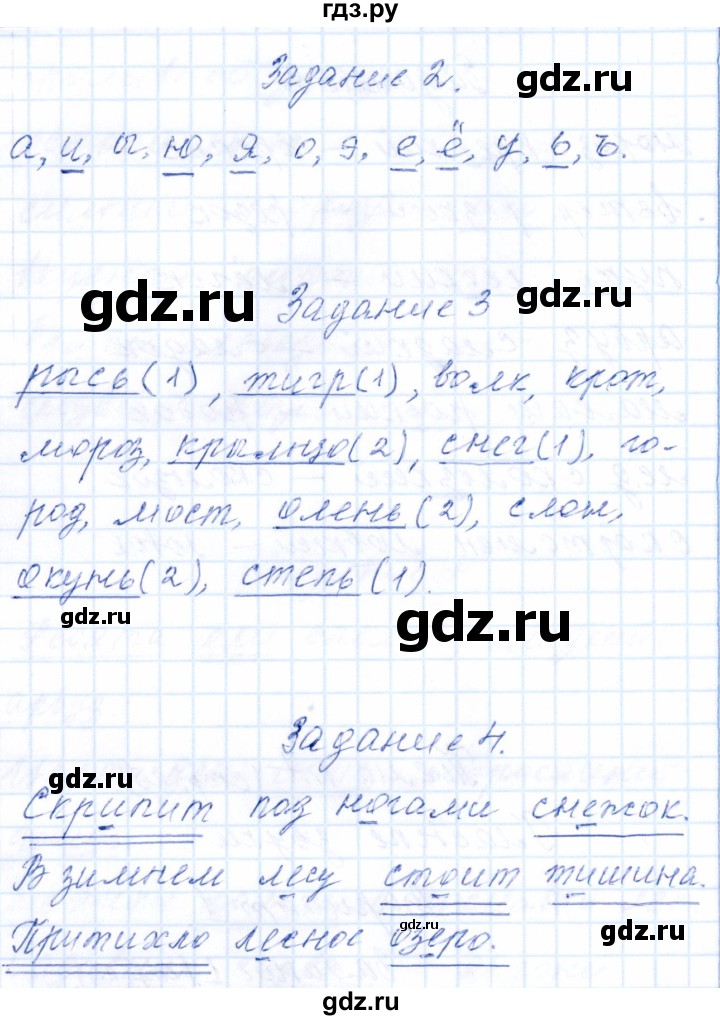 гдз.ру
Задание 2.
gdz.ru
а, и, ы, ю, я, о, э, е, ё, у, ь, ъ.
gdz.ru
Задание 3
gdz.ru
рысь (1), тигр (1), волк, крот,
мороз, крыльцо (2), снег (1), го-
род, мост, олень (2), слон,
окунь (2), степь (1).
gdz.ru
gdz.ru
Задание 4.
gdz.ru
Скрипит под ногами снежок.
В зимнем лесу стоит тишина.
gdz.ru
Притихло лесное озеро.
gdz.ru
gdz.ru